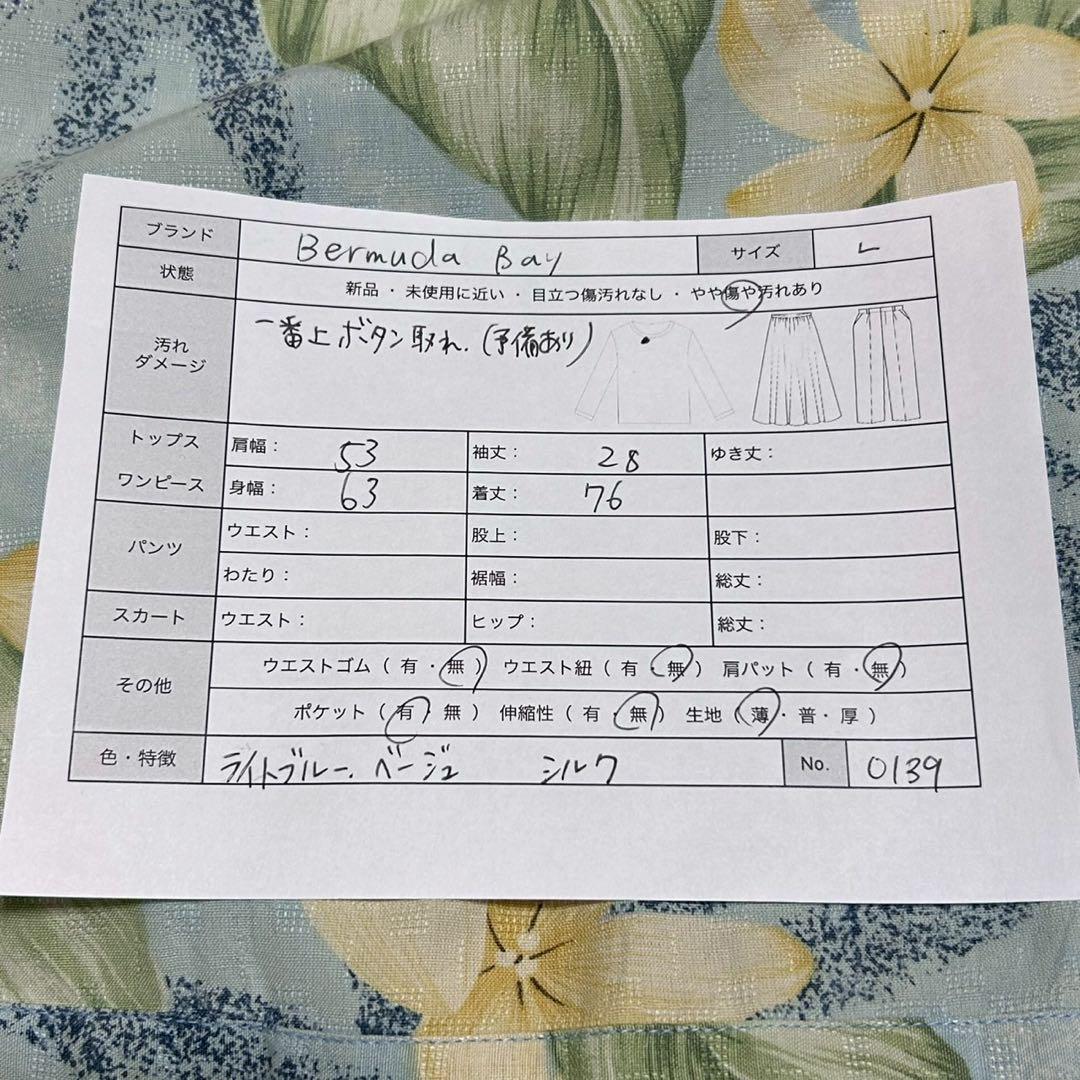 ブランド Bermuda Bay サイズ L
状態 新品 ・ 未使用に近い ・ 目立つ傷汚れなし ・ やや傷や汚れあり
汚れ
ダメージ
一番上ボタン取れ.(予備あり)
トップス
ワンピース
肩幅： 53 袖丈： 28 ゆき丈：
身幅： 63 着丈： 76
パンツ
ウエスト： 股上： 股下：
わたり： 裾幅： 総丈：
スカート ウエスト： ヒップ： 総丈：
その他
ウエストゴム（ 有 ・ 無 ） ウエスト紐（ 有 ・ 無 ） 肩パット（ 有 ・ 無 ）
ポケット（ 有 ・ 無 ） 伸縮性（ 有 ・ 無 ） 生地（ 薄 ・ 普 ・ 厚 ）
色・特徴 ライトブルー. ベージュ シルク No. 0139